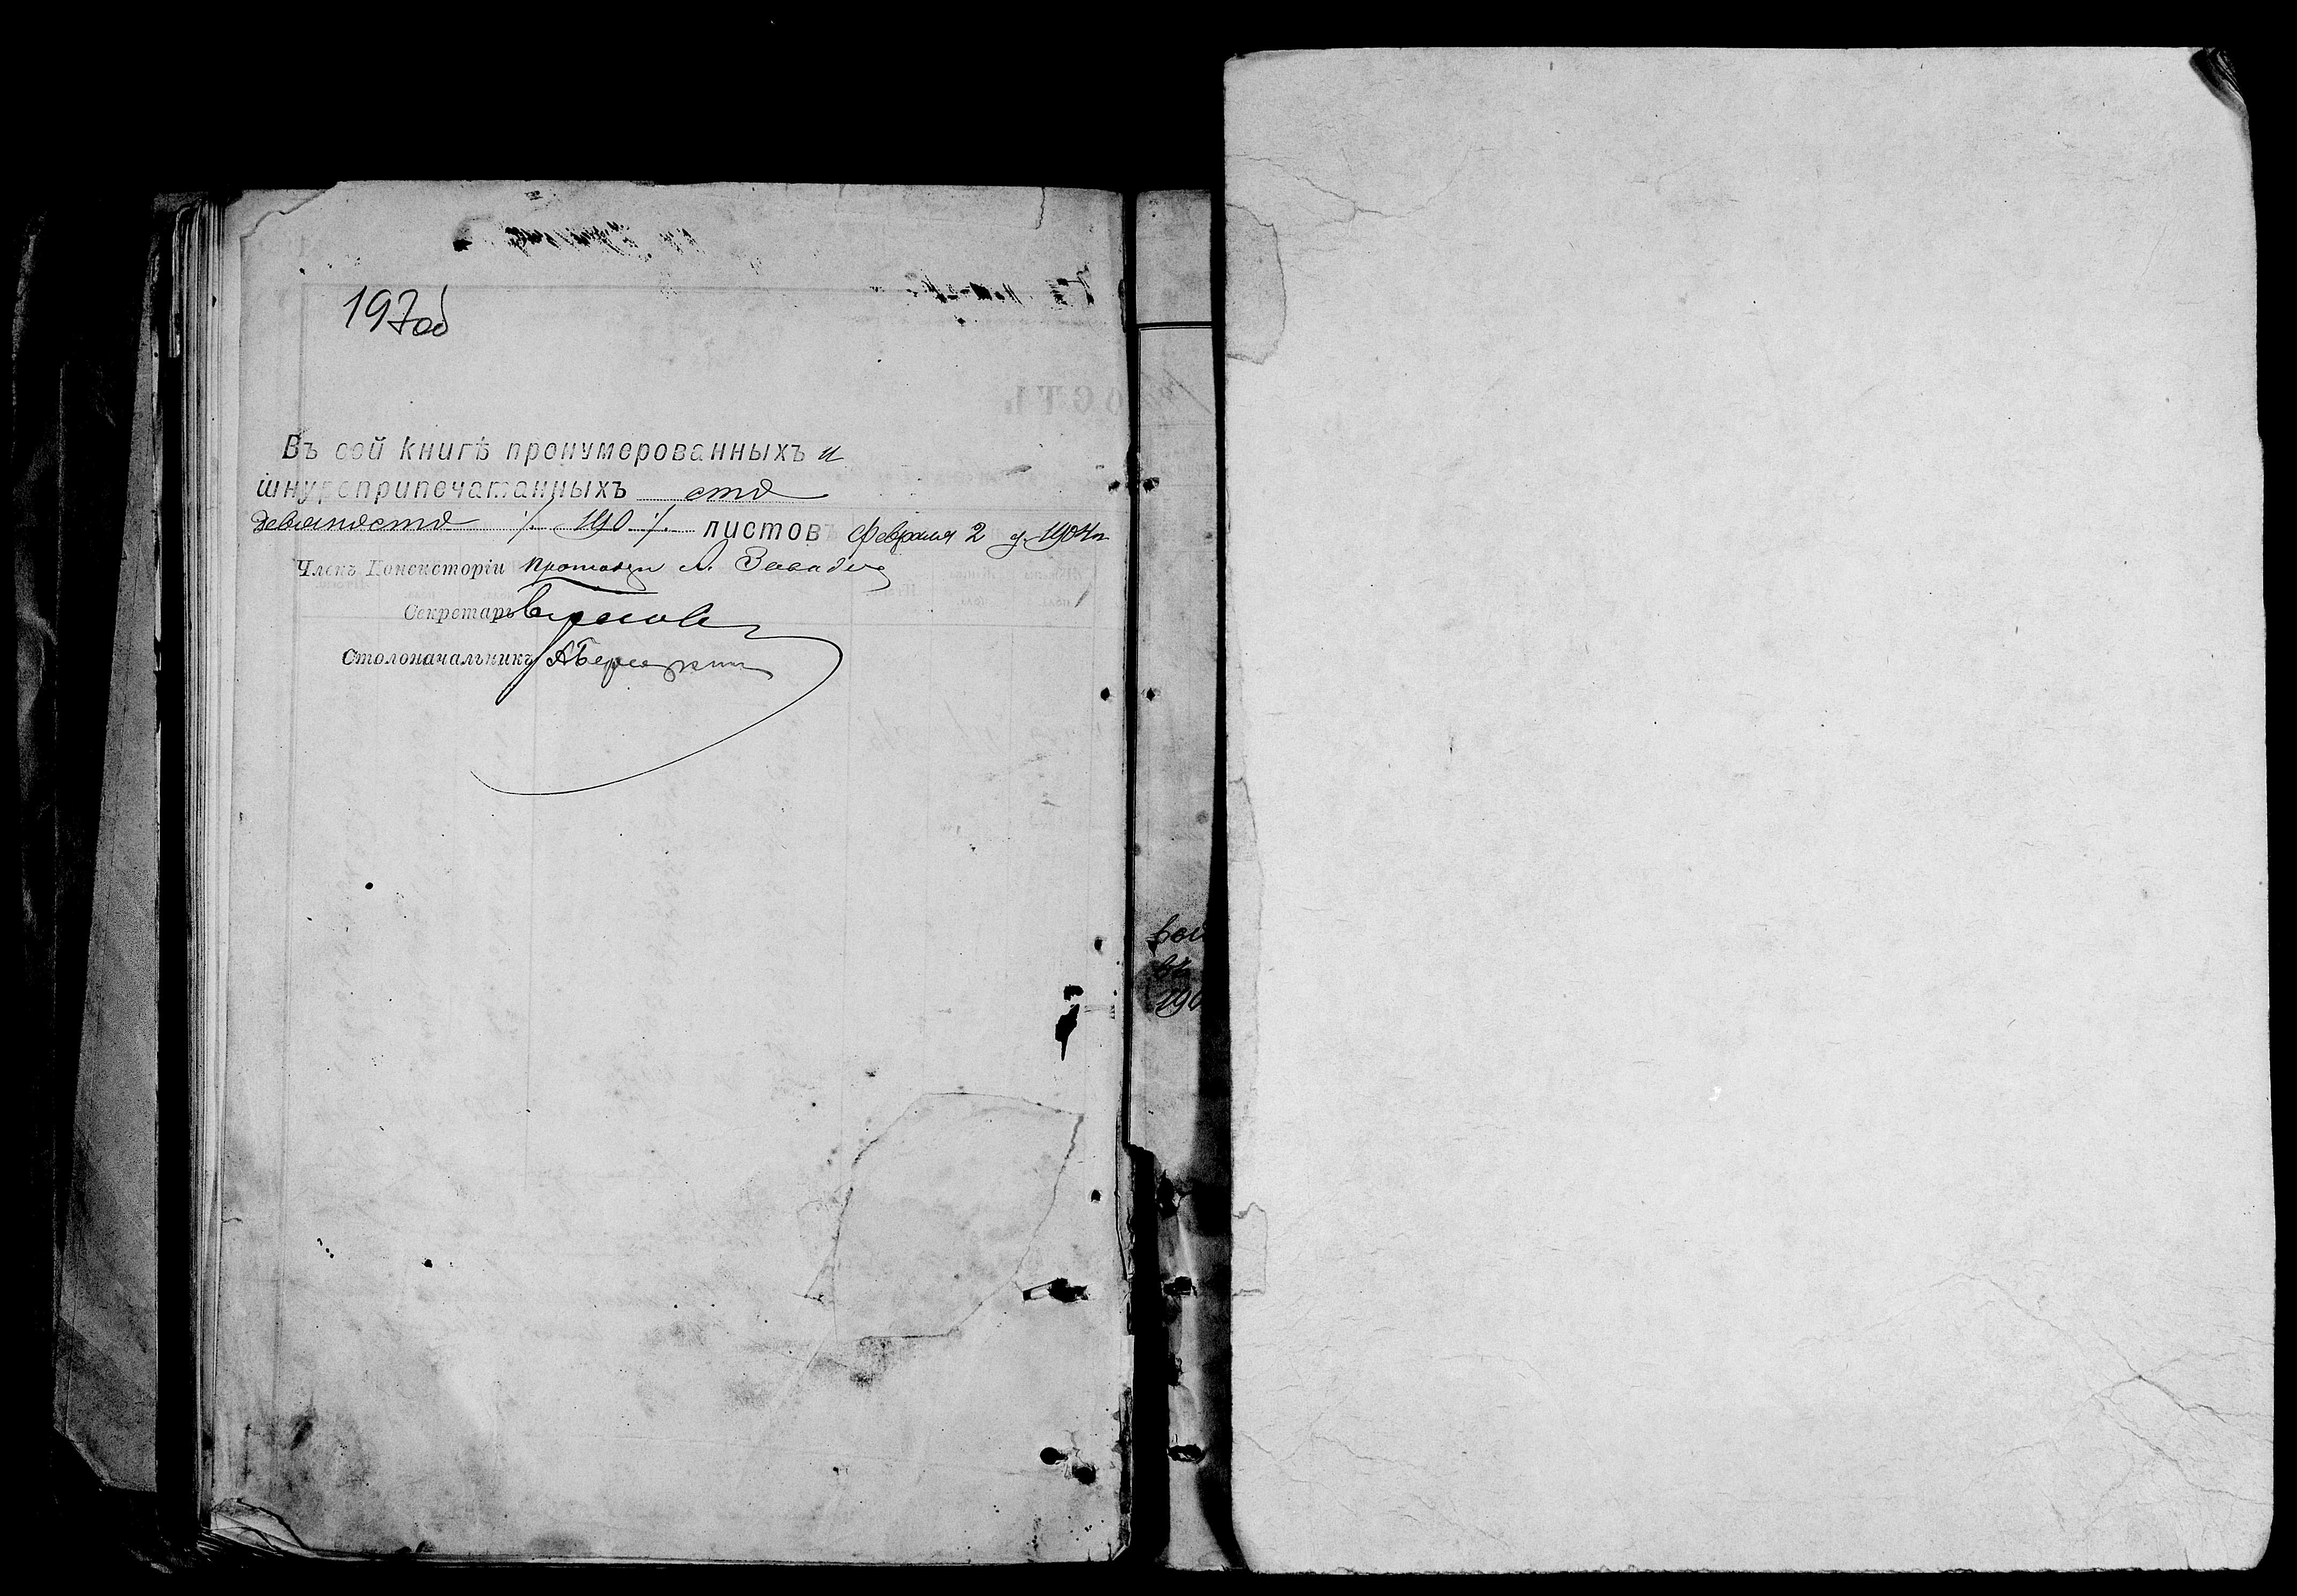 197об
Въ сей книгѣ пронумерованныхъ и
шнуроприпечатанныхъ сто
девяносто ./. 190 ./. листовъ Февраля 2 д. 1904 г.
Членъ Консисторіи Протоіер. А.
Секретарь
Столоначальникъ
вой
въ
190